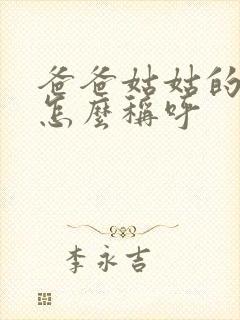 爸爸姑姑的
怎麼稱呼
李永吉